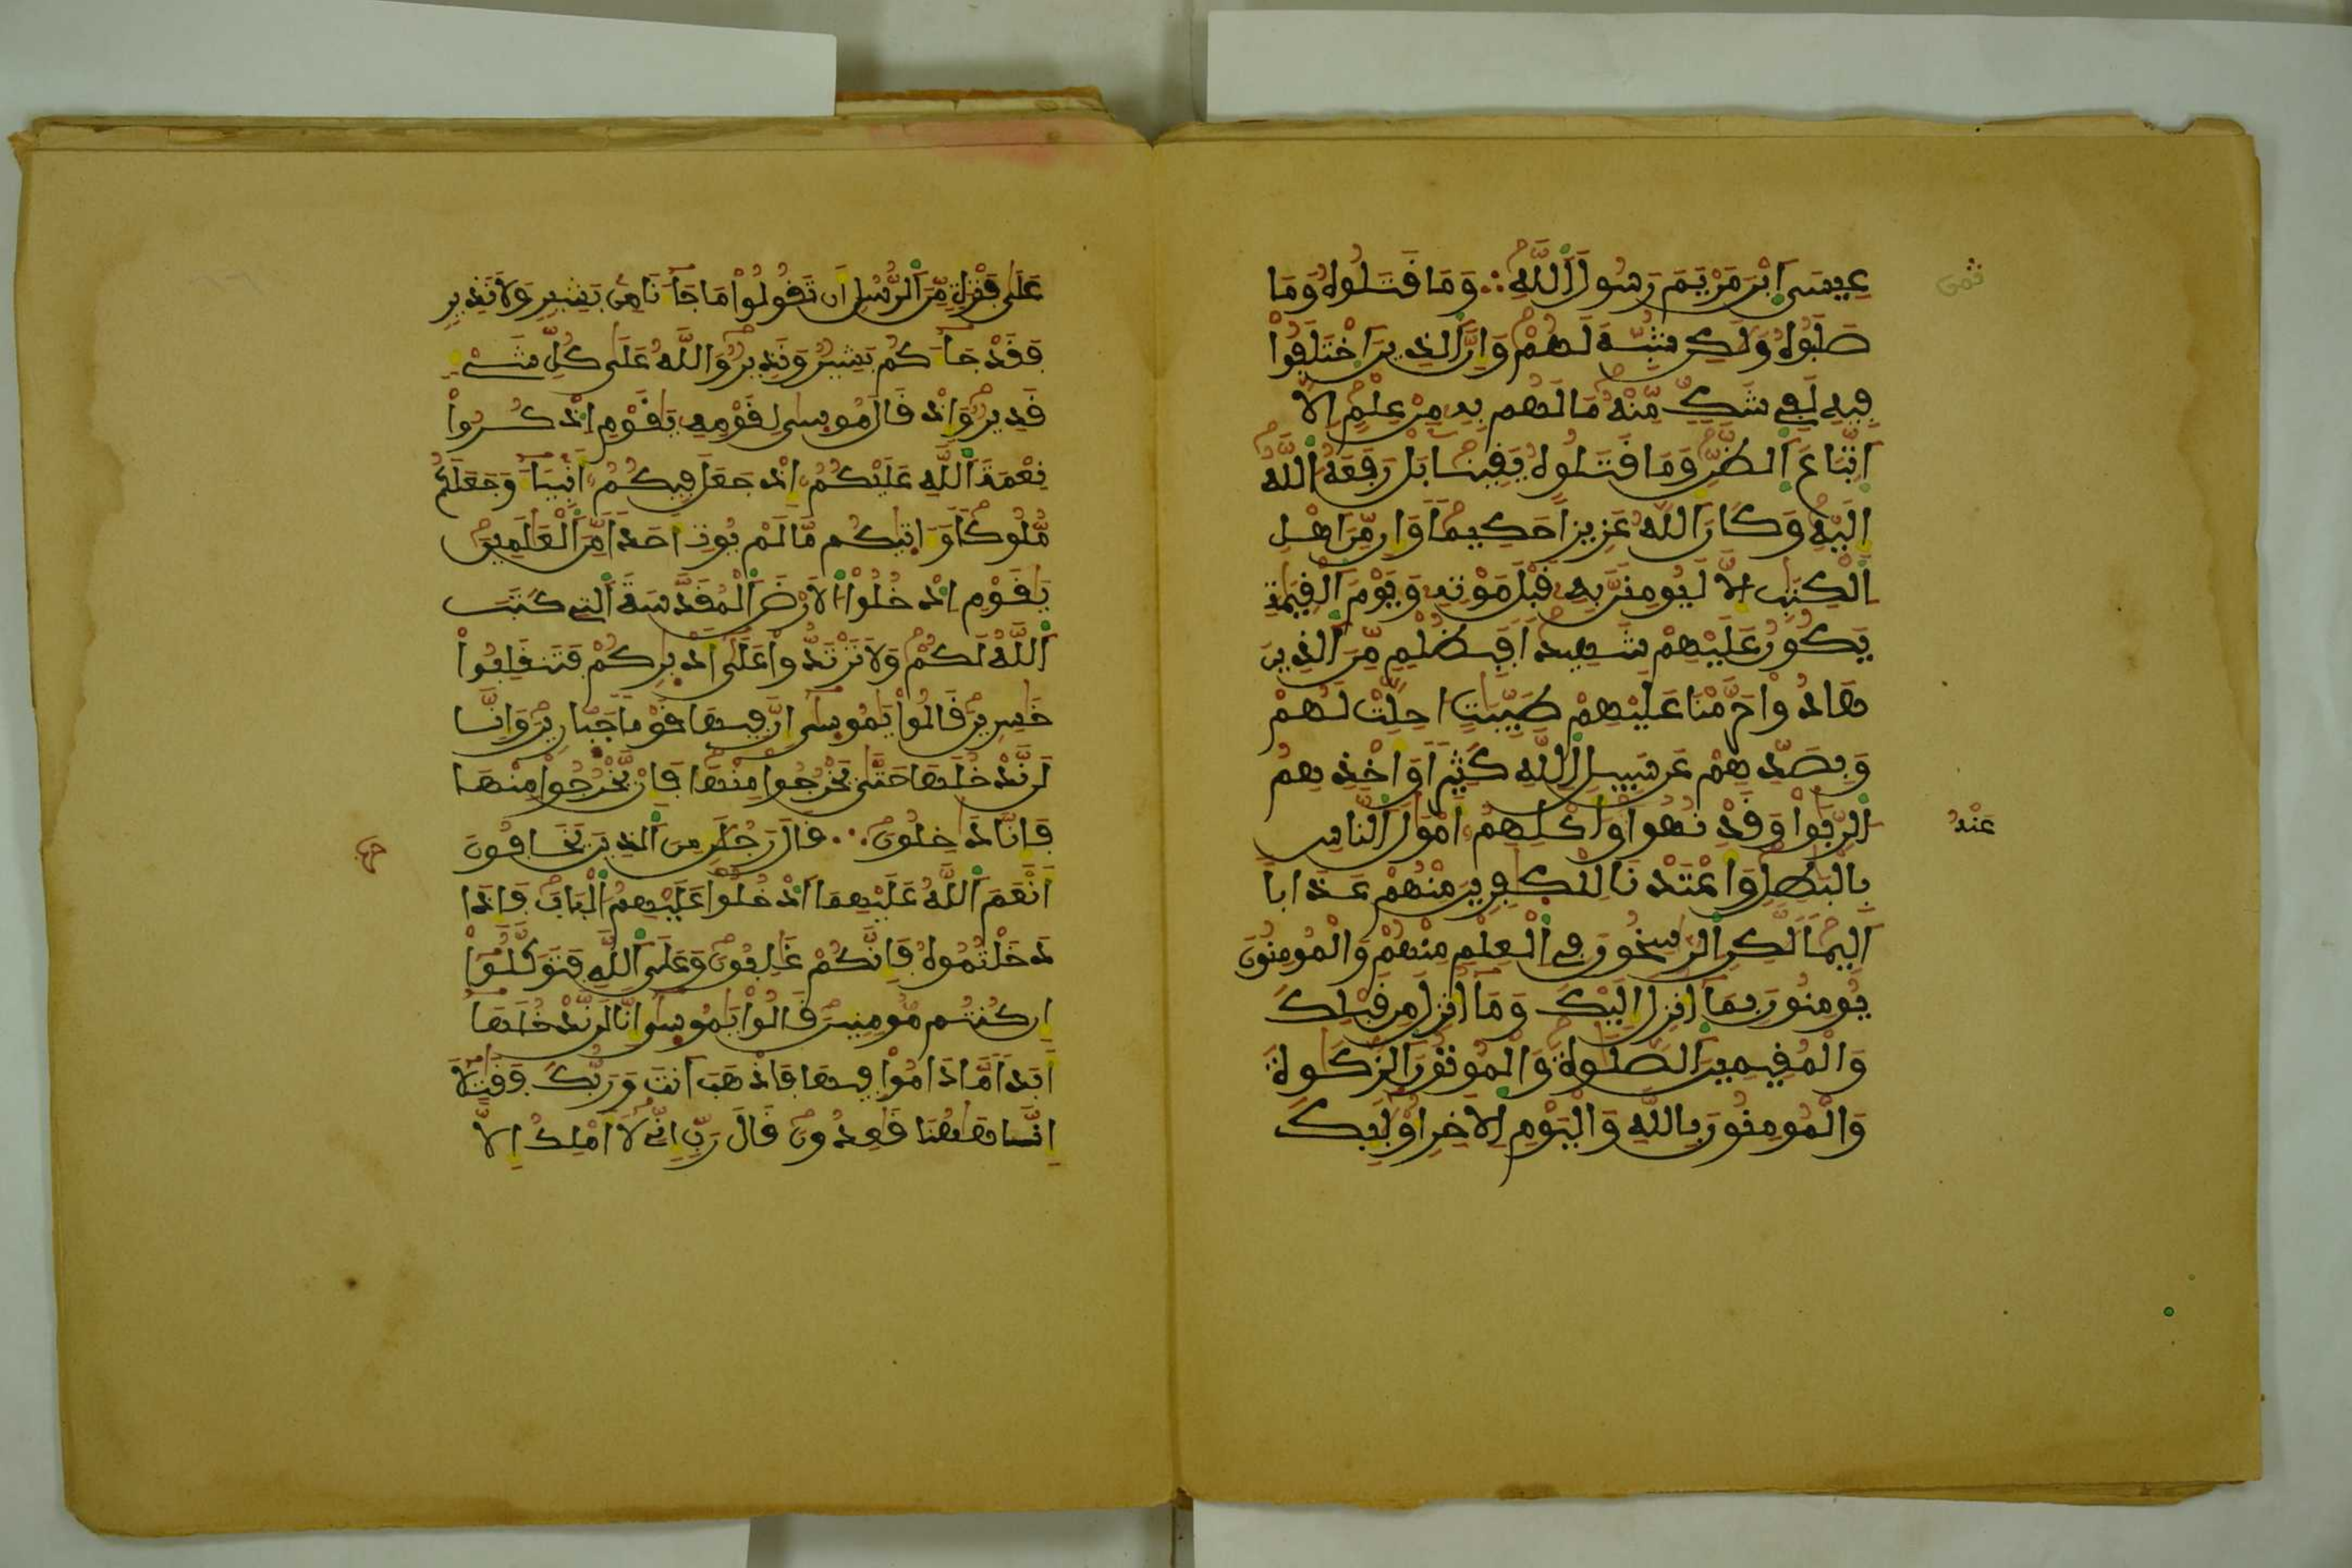 عِيسَى اَبْنَ مَرْيَمَ رَسُولَ اَللَّهِ ∴ وَمَا قَتَلُوهُ وَمَا
صَلَبُوهُ وَلَكِن شُبِّهَ لَهُمْ وَإِنَّ اَلذِينَ اَخْتَلَفُواْ
فِيهِ لَفِي شَكٍّ مِّنْهُ مَا لَهُم بِهِ مِنْ عِلْمٍ اِلَّا
اَتِّبَاعَ اَلظَّنِّ وَمَا قَتَلُوهُ يَقِينًا بَل رَّفَعَهُ اُللَّهُ
إِلَيْهِ وَكَانَ اَللَّهُ عَزِيزاً حَكِيماً وَإِن مِّنَ اَهْلِ
اِلْكِتَبِ إِلَّا لَيُومِنَنَّ بِهِ قَبْلَ مَوْتِهِ وَيَوْمَ اَلْقِيَمَةِ
يَكُونُ عَلَيْهِمْ شَهِيداً فَبِظُلْمٍ مِّنَ اَلذِينَ
هَادُواْ حَرَّمْنَا عَلَيْهِمْ طَيِّبَتٍ احِلَّتْ لَهُمْ
وَبِصَدِّهِمْ عَن سَبِيلِ اِللَّهِ كَثِيراً وَأَخْذِهِمُ
اُلرِّبَواْ وَقَدْ نُهُواْ عَنْهُ وَأَكْلِهِمُ أَمْوَلَ اَلنَّاسِ
بِالْبَطِلِ وَأَعْتَدْنَا لِلْكَفِرِينَ مِنْهُمْ عَذَاباً
اَلِيماً لَّكِنِ اِلرَّسِخُونَ فِي اِلْعِلْمِ مِنْهُمْ وَالْمُومِنُونَ
يُومِنُونَ بِمَا أُنزِلَ إِلَيْكَ وَمَا أُنزِلَ مِن قَبْلِكَ
وَالْمُقِيمِينَ اَلصَّلَوةَ وَالْمُوتُونَ اَلزَّكَوةَ
وَالْمُومِنُونَ بِاللَّهِ وَالْيَوْمِ اِلَاخِرِ أُوْلَئِكَ
عَلَى فَتْرَةٍ مِّنَ اَلرُّسُلِ أَن تَقُولُواْ مَا جَاءَنَا مِن بَشِيرٍ وَلَا نَذِيرٍ
فَقَدْ جَاءَكُم بَشِيرٌ وَنَذِيرٌ وَاللَّهُ عَلَى كُلِّ شَيْءٍ
قَدِيرٌ وَإِذْ قَالَ مُوسَى لِقَوْمِهِ يَقَوْمِ اِذْكُرُواْ
نِعْمَةَ اَللَّهِ عَلَيْكُمُ إِذْ جَعَلَ فِيكُمُ أَنبِيَاءَ وَجَعَلَكُم
مُّلُوكاً وَءَاتَيكُم مَّا لَمْ يُوتِ أَحَداً مِّنَ اَلْعَلَمِينَ
يَقَوْمِ اِدْخُلُواْ اُلَارْضَ اَلْمُقَدَّسَةَ اَلتِي كَتَبَ
اَللَّهُ لَكُمْ وَلَا تَرْتَدُّواْ عَلَى أَدْبَرِكُمْ فَتَنقَلِبُواْ
خَسِرِينَ قَالُواْ يَمُوسَى إِنَّ فِيهَا قَوْماً جَبَّارِينَ وَإِنَّا
لَن نَّدْخُلَهَا حَتَّى يَخْرُجُواْ مِنْهَا فَإِنْ يَّخْرُجُواْ مِنْهَا
فَإِنَّا دَخِلُونَ ∴ قَالَ رَجُلَنِ مِنَ اَلذِينَ يَخَافُونَ
أَنْعَمَ اَللَّهُ عَلَيْهِمَا اَدْخُلُواْ عَلَيْهِمُ اُلْبَابَ فَإِذَا
دَخَلْتُمُوهُ فَإِنَّكُمْ غَلِبُونَ وَعَلَى اَللَّهِ فَتَوَكَّلُواْ
إِن كُنتُم مُّومِنِينَ قَالُواْ يَمُوسَى إِنَّا لَن نَّدْخُلَهَا
أَبَداً مَّا دَامُواْ فِيهَا فَاذْهَبَ اَنتَ وَرَبُّكَ فَقَتِلَا
إِنَّا هَهُنَا قَعِدُونَ قَالَ رَبِّ إِنِّي لَا أَمْلِكُ إِلَّا